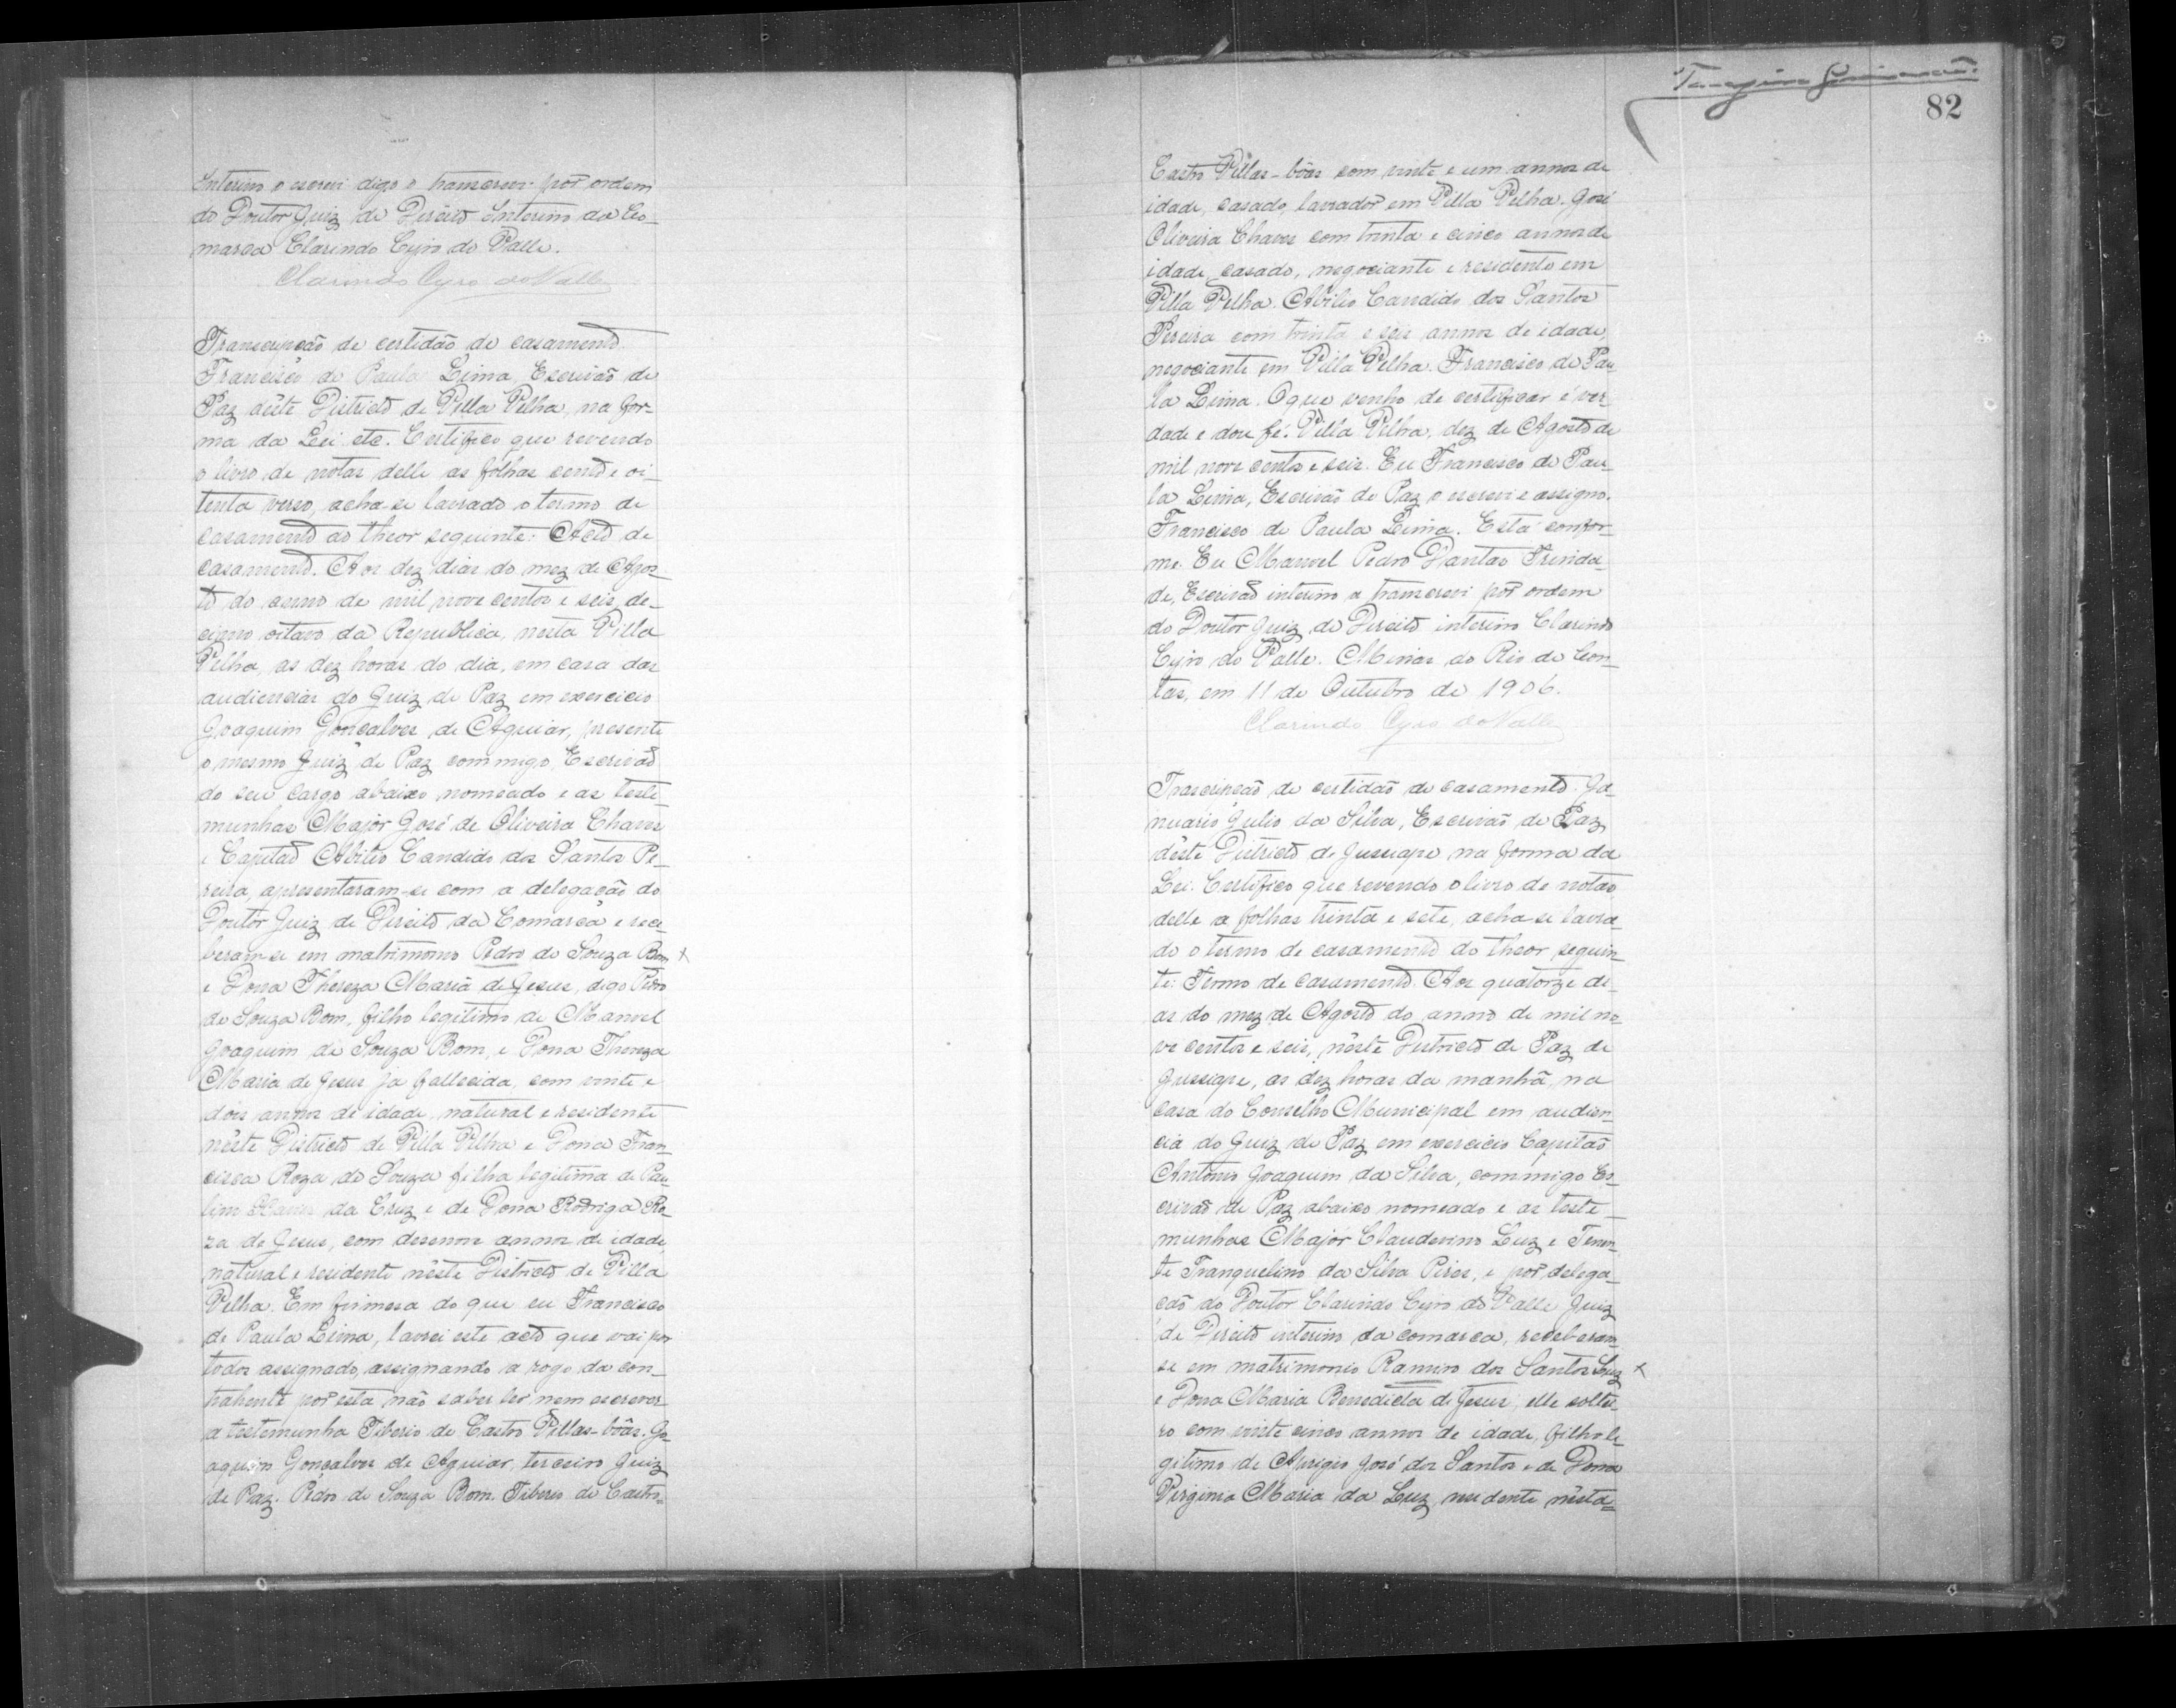 Interino o escrevi digo o transcrevi por ordem
do Doutor Juiz de Direito Interino da Co-
marca Clarindo Cyro do Valle.
Clarindo Cyro do Valle
Transcripcão de certidão de casamento
Francisco de Paula Lima, Escrivão de
Paz dêste Districto de Villa Velha, na for-
ma da Lei etc. Certifico que revendo
o livro de notas delle as folhas cento e oi-
tenta verso, acha-se lavrado o termo de
casamento do theor seguinte: Acto de
casamento. Aos dez dias do mez de Agos-
to do anno de mil nove centos e seis, de-
cimo oitavo da Republica, nesta Villa
Velha, as dez horas do dia, em casa das
audiencias do Juiz de Paz em exercicio
Joaquim Gonçalves de Aguiar, presente
o mesmo Juiz de Paz commigo Escrivão
do seu cargo abaixo nomeado e as teste-
munhas Major José de Oliveira Chaves
e Capitão Abilio Candido dos Santos Pe-
reira, apresentaram-se com a delegação do
Doutor Juiz de Direito da Comarca e rece-
beram-se em matrimonio Pedro de Souza Bom x
e Dona Thereza Maria de Jesus, digo Pedro
de Souza Bom, filho legitimo de Manoel
Joaquim de Souza Bom, e Dona Thereza
Maria de Jesus ja fallecida, com vinte e
dois annos de idade natural e residente
nêste Districto de Villa Velha e Dona Fran-
cisca Roza de Souza filha legitima de Pau-
lino Xavier da Cruz e de Dona Rodriga Ro-
za de Jesus, com desenove annos de idade,
natural e residente nêste Districto de Villa
Velha. Em firmesa do que eu Francisco
de Paula Lima, lavrei este acto que vai por
todos assignado, assignando a rogo da con-
trahente por esta não saber ler nem escrever
a testemunha Tiberio de Castro Villas-bôas. Jo-
aquim Gonçalves de Aguiar, terceiro Juiz
de Paz. Pedro de Souza Bom. Tiberio de Castro=
82
Castro Villas-bôas com vinte e um annos de
idade, casado, lavrador em Villa Velha. José
Oliveira Chaves com trinta e cinco annos de
idade, casado, negociante e residente em
Villa Velha. Abilio Candido dos Santos
Pereira com trinta e seis annos de idade,
negociante em Villa Velha. Francisco de Pau-
la Lima. O que venho de certificar é ver-
dade e dou fé. Villa Velha, dez de Agosto de
mil nove centos e seis. Eu Francisco de Pau-
la Lima, Escrivão de Paz o escrevi e assigno.
Francisco de Paula Lima. Está confor-
me. Eu Manoel Pedro Dantas Trinda-
de, Escrivão interino a transcrevi por ordem
do Doutor Juiz de Direito interino Clarindo
Cyro do Valle. Minas do Rio de Con-
tas, em 11 de Outubro de 1906.
Clarindo Cyro do Valle
Trascripcão de certidão de casamento. Ja-
nuario Julio da Silva, Escrivão de Paz
dêste Districto de Jussiape na forma da
Lei. Certifico que revendo o livro de notas
delle a folhas trinta e sete, acha-se lavra-
do o termo de casamento do theor seguin-
te: Termo de casamento. Aos quatorze di-
as do mez de Agosto do anno de mil no-
ve centos e seis, nêste Districto de Paz de
Jussiape, as dez horas da manhã na
casa do Conselho Municipal em audien-
cia do Juiz de Paz em exercicio Capitão
Antonio Joaquim da Silva, commigo Es-
crivão de Paz abaixo nomeado e as teste-
munhas Major Claudevino Luz e Tenen-
te Tranquelino da Silva Pires, e por delega-
cão do Doutor Clarindo Cyro do Valle Juiz
de Direito interino da comarca, receberam-
se em matrimonio Ramiro dos Santos Luz x
e Dona Maria Benedicta de Jesus, elle soltei-
ro com vinte cinco annos de idade, filho le-
gitimo de Aprigio José dos Santos e de Dona
Virginia Maria da Luz, residente nesta=